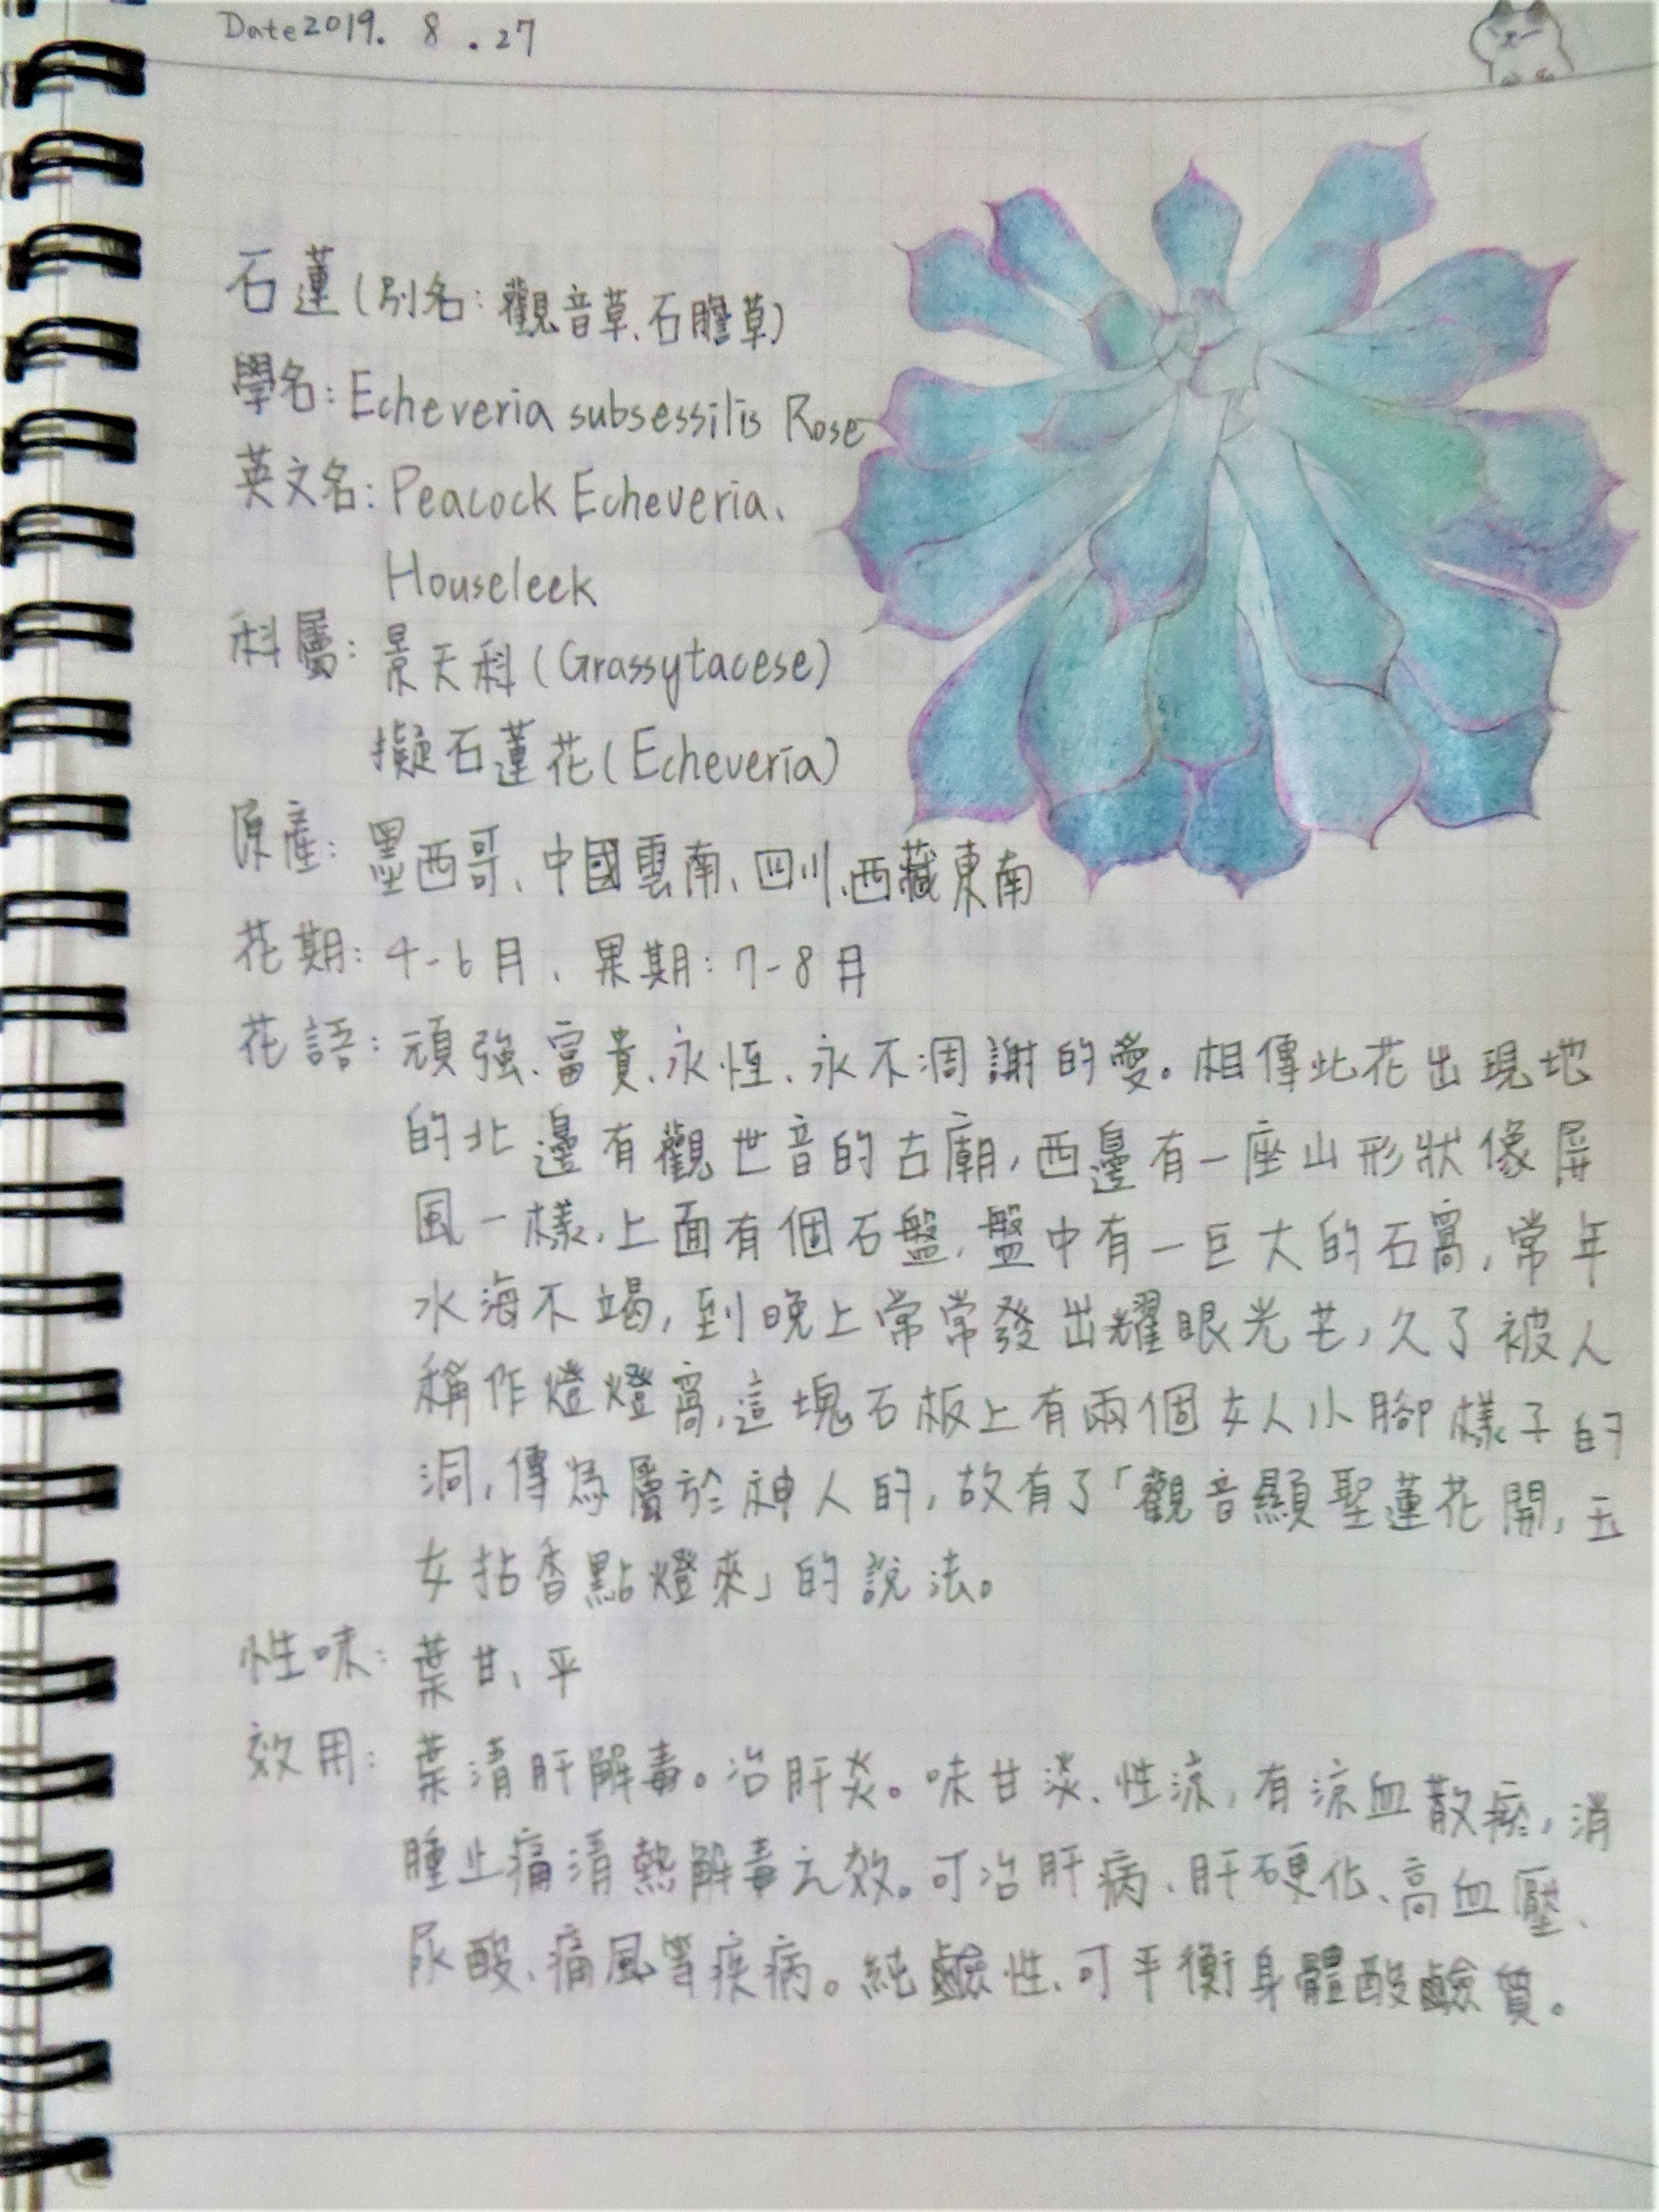 Date 2019. 8 . 27
石蓮(別名：觀音草、石膽草)
學名：Echeveria subsessilis Rose
英文名：Peacock Echeveria、
Houseleek
科屬：景天科(Grassytacese)
擬石蓮花(Echeveria)
原產：墨西哥、中國雲南、四川、西藏東南
花期：4-6月、果期：7-8月
花語：頑強、富貴、永恆、永不凋謝的愛。相傳此花出現地
的北邊有觀世音的古廟，西邊有一座山形狀像屏
風一樣，上面有個石盤，盤中有一巨大的石窩，常年
水海不竭，到晚上常常發出耀眼光芒，久了被人
稱作燈燈窩，這塊石板上有兩個女人小腳樣子的
洞，傳為屬於神人的，故有了「觀音顯聖蓮花開，玉
女拈香點燈來」的說法。
性味：葉甘、平
效用：葉清肝解毒。治肝炎。味甘淡、性涼，有涼血散瘀，消
腫止痛清熱解毒之效。可治肝病、肝硬化、高血壓、
尿酸、痛風等疾病。純鹼性、可平衡身體酸鹼質。